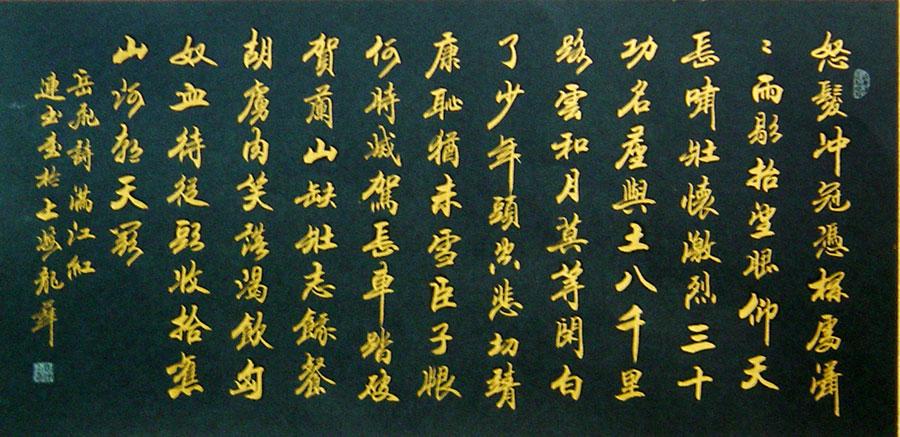 怒髮冲冠憑欄處瀟
〻雨歇抬望眼仰天
長嘯壯懷激烈三十
功名塵與土八千里
路雲和月莫等閑白
了少年頭空悲切靖
康恥猶未雪臣子恨
何時滅駕長車踏破
賀蘭山缺壯志飢餐
胡虜肉笑談渴飲匈
奴血待從頭收拾舊
山河朝天闕
岳飛詩滿江紅
連玉書於上海龍華